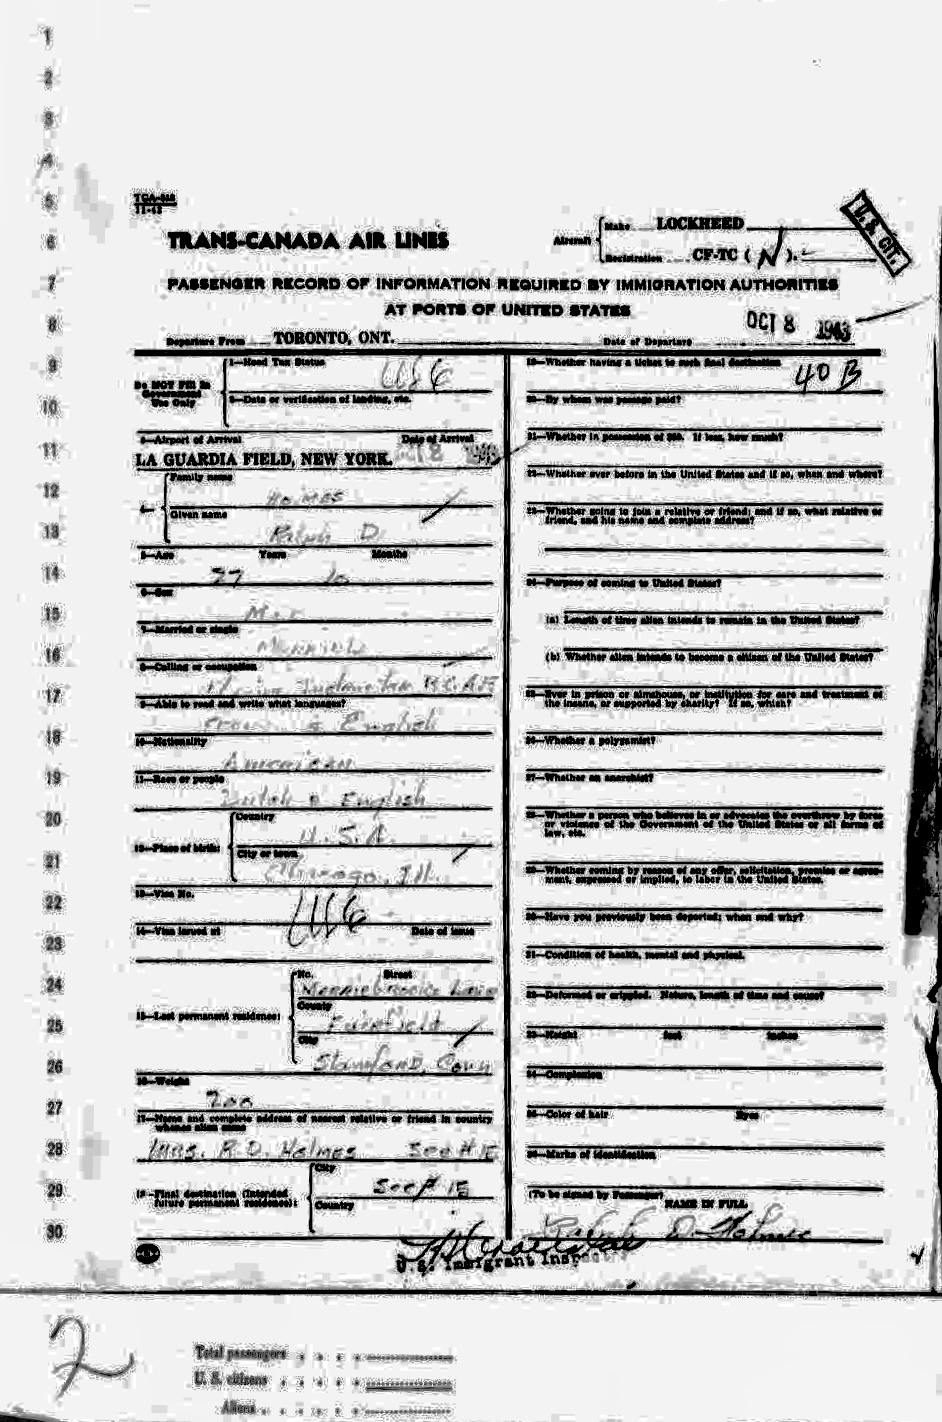 1
2
3
4
5
6
7
8
9
10
11
12
13
14
15
16
17
18
19
20
21
22
23
24
25
26
27
28
29
30
11-43
TRANS-CANADA AIR LINES
Aircraft
Make LOCKHEED
Registration CF-TC ( N ).
U. S. CIT.
PASSENGER RECORD OF INFORMATION REQUIRED BY IMMIGRATION AUTHORITIES
AT PORTS OF UNITED STATES
OCT 8 1943
Departure From TORONTO, ONT. Date of Departure
Do NOT Fill In
Government
Use Only
1—Head Tax Status
2—Date or verification of landing, etc.
3—Airport of Arrival Date of Arrival
LA GUARDIA FIELD, NEW YORK. OCT 8
4— Family name
Holmes
Given name
Ralph D.
5—Age Years Months
10
6—Sex
7—Married or single
Married
8—Calling or occupation
Flying Instructor R.C.A.F.
9—Able to read and write what languages?
& English
10—Nationality
American
11—Race or people
Dutch & English
12—Place of birth: Country
U.S.A.
City or town
Chicago, Ill.
13—Visa No.
14—Visa issued at Date of issue
15—Last permanent residence: No. Street
Lane
County
Fairfield
City
Stamford, Conn
16—Weight
200
17—Name and complete address of nearest relative or friend in country
whence alien came
Mrs. R. D. Holmes See # 15
18—Final destination (Intended
future permanent residence): City
See # 15
Country
19—Whether having a ticket to such final destination
40 B
20—By whom was passage paid?
21—Whether in possession of $50. If less, how much?
22—Whether ever before in the United States and if so, when and where?
23—Whether going to join a relative or friend; and if so, what relative or
friend, and his name and complete address?
24—Purpose of coming to United States?
(a) Length of time alien intends to remain in the United States?
(b) Whether alien intends to become a citizen of the United States?
25—Ever in prison or almshouse, or institution for care and treatment of
the insane, or supported by charity? If so, which?
26—Whether a polygamist?
27—Whether an anarchist?
28—Whether a person who believes in or advocates the overthrow by force
or violence of the Government of the United States or all forms of
law, etc.
29—Whether coming by reason of any offer, solicitation, promise or agree-
ment, expressed or implied, to labor in the United States.
30—Have you previously been deported; when and why?
31—Condition of health, mental and physical.
32—Deformed or crippled. Nature, length of time and cause?
33—Height feet inches
34—Complexion
35—Color of hair Eyes
36—Marks of identification
(To be signed by Passenger) NAME IN FULL
Ralph D. Holmes
U.S. Immigrant Inspector
2
Total passengers
U. S. citizens
Aliens